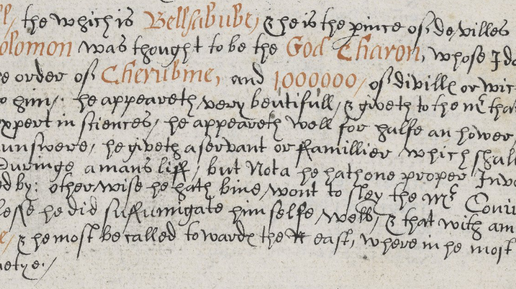 the which is Bellsabube, & he is the prince of devilles
olomon was thought to be the God Charon, whose Ido
e order of Cherubine, and 1000000, of divills or wic
o him: he appeareth very beutifull, & giveth to the mr that
xpert in sciences, he appeareth well for halfe an hower,
unswere, he giveth a servant or famillier which shall
Duringe a mans liff, but Nota he hath one proper Invo
d by: otherwise he hath bine wont to sley the mr
lesse he did suffumigate him selfe well, & that with am
& he most be called towardes the east, where in he most